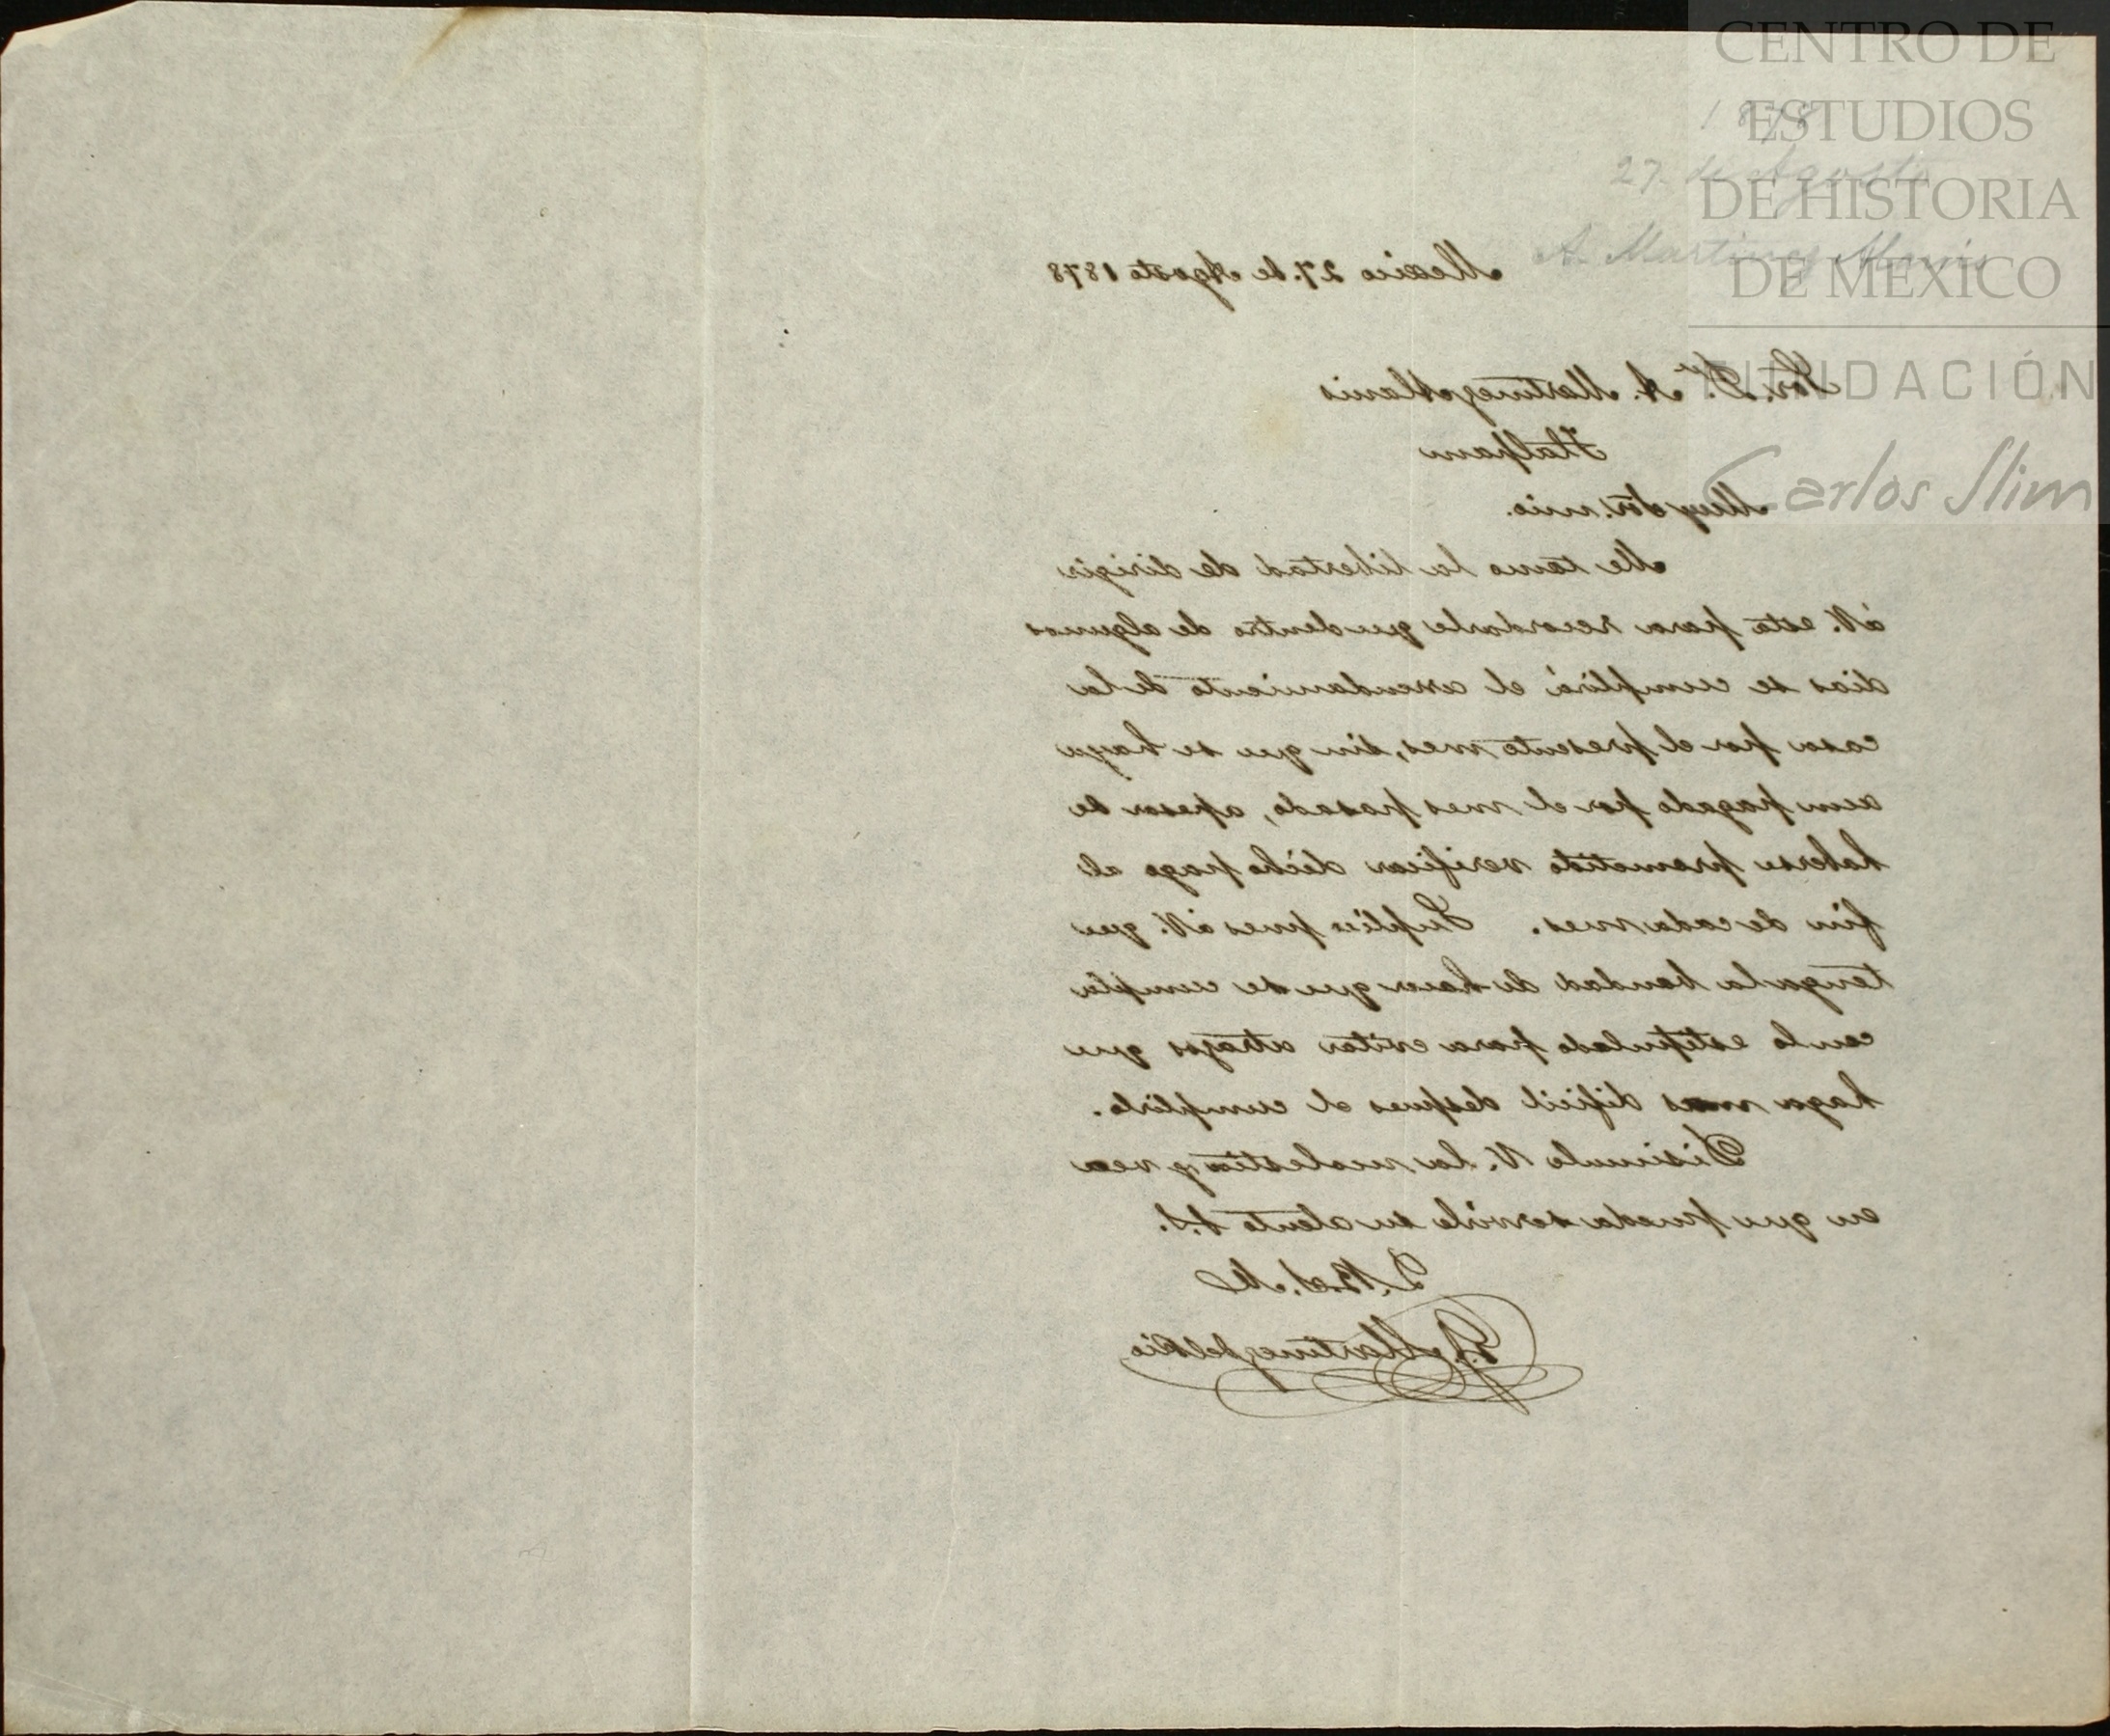 CENTRO DE
ESTUDIOS
DE HISTORIA
DE MEXICO
FUNDACIÓN
Carlos Slim
1878
27. de Agosto
A. Martinez Alanis
Mexico 27. de Agosto 1878
Sor. Dn. A. Martinez Alanis
Tlalpam
Muy Sor. mio.
Me tomo la libertad de dirigir
á V. esta para recordarle que dentro de algunos
dias se cumplirá el arrendamiento de la
casa por el presente mes, sin que se haya
aun pagado por el mes pasado, apesar de
haberse prometido verificar dicho pago al
fin de cada mes. Suplico pues á V. que
tenga la bondad de hacer que se cumpla
con lo estipulado para evitar atrasos que
haga mas dificil despues el cumplirlo.
Disimule V. la molestia y vea
en que pueda servirle su atento S.S.
Q.B.S.M.
Martinez del Rio